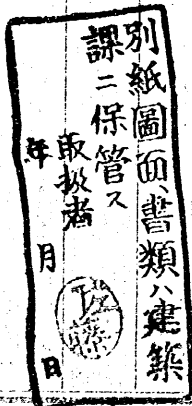 別紙圖面、書類ハ建築
課ニ保管ス
取扱者
年 月 日
佐藤